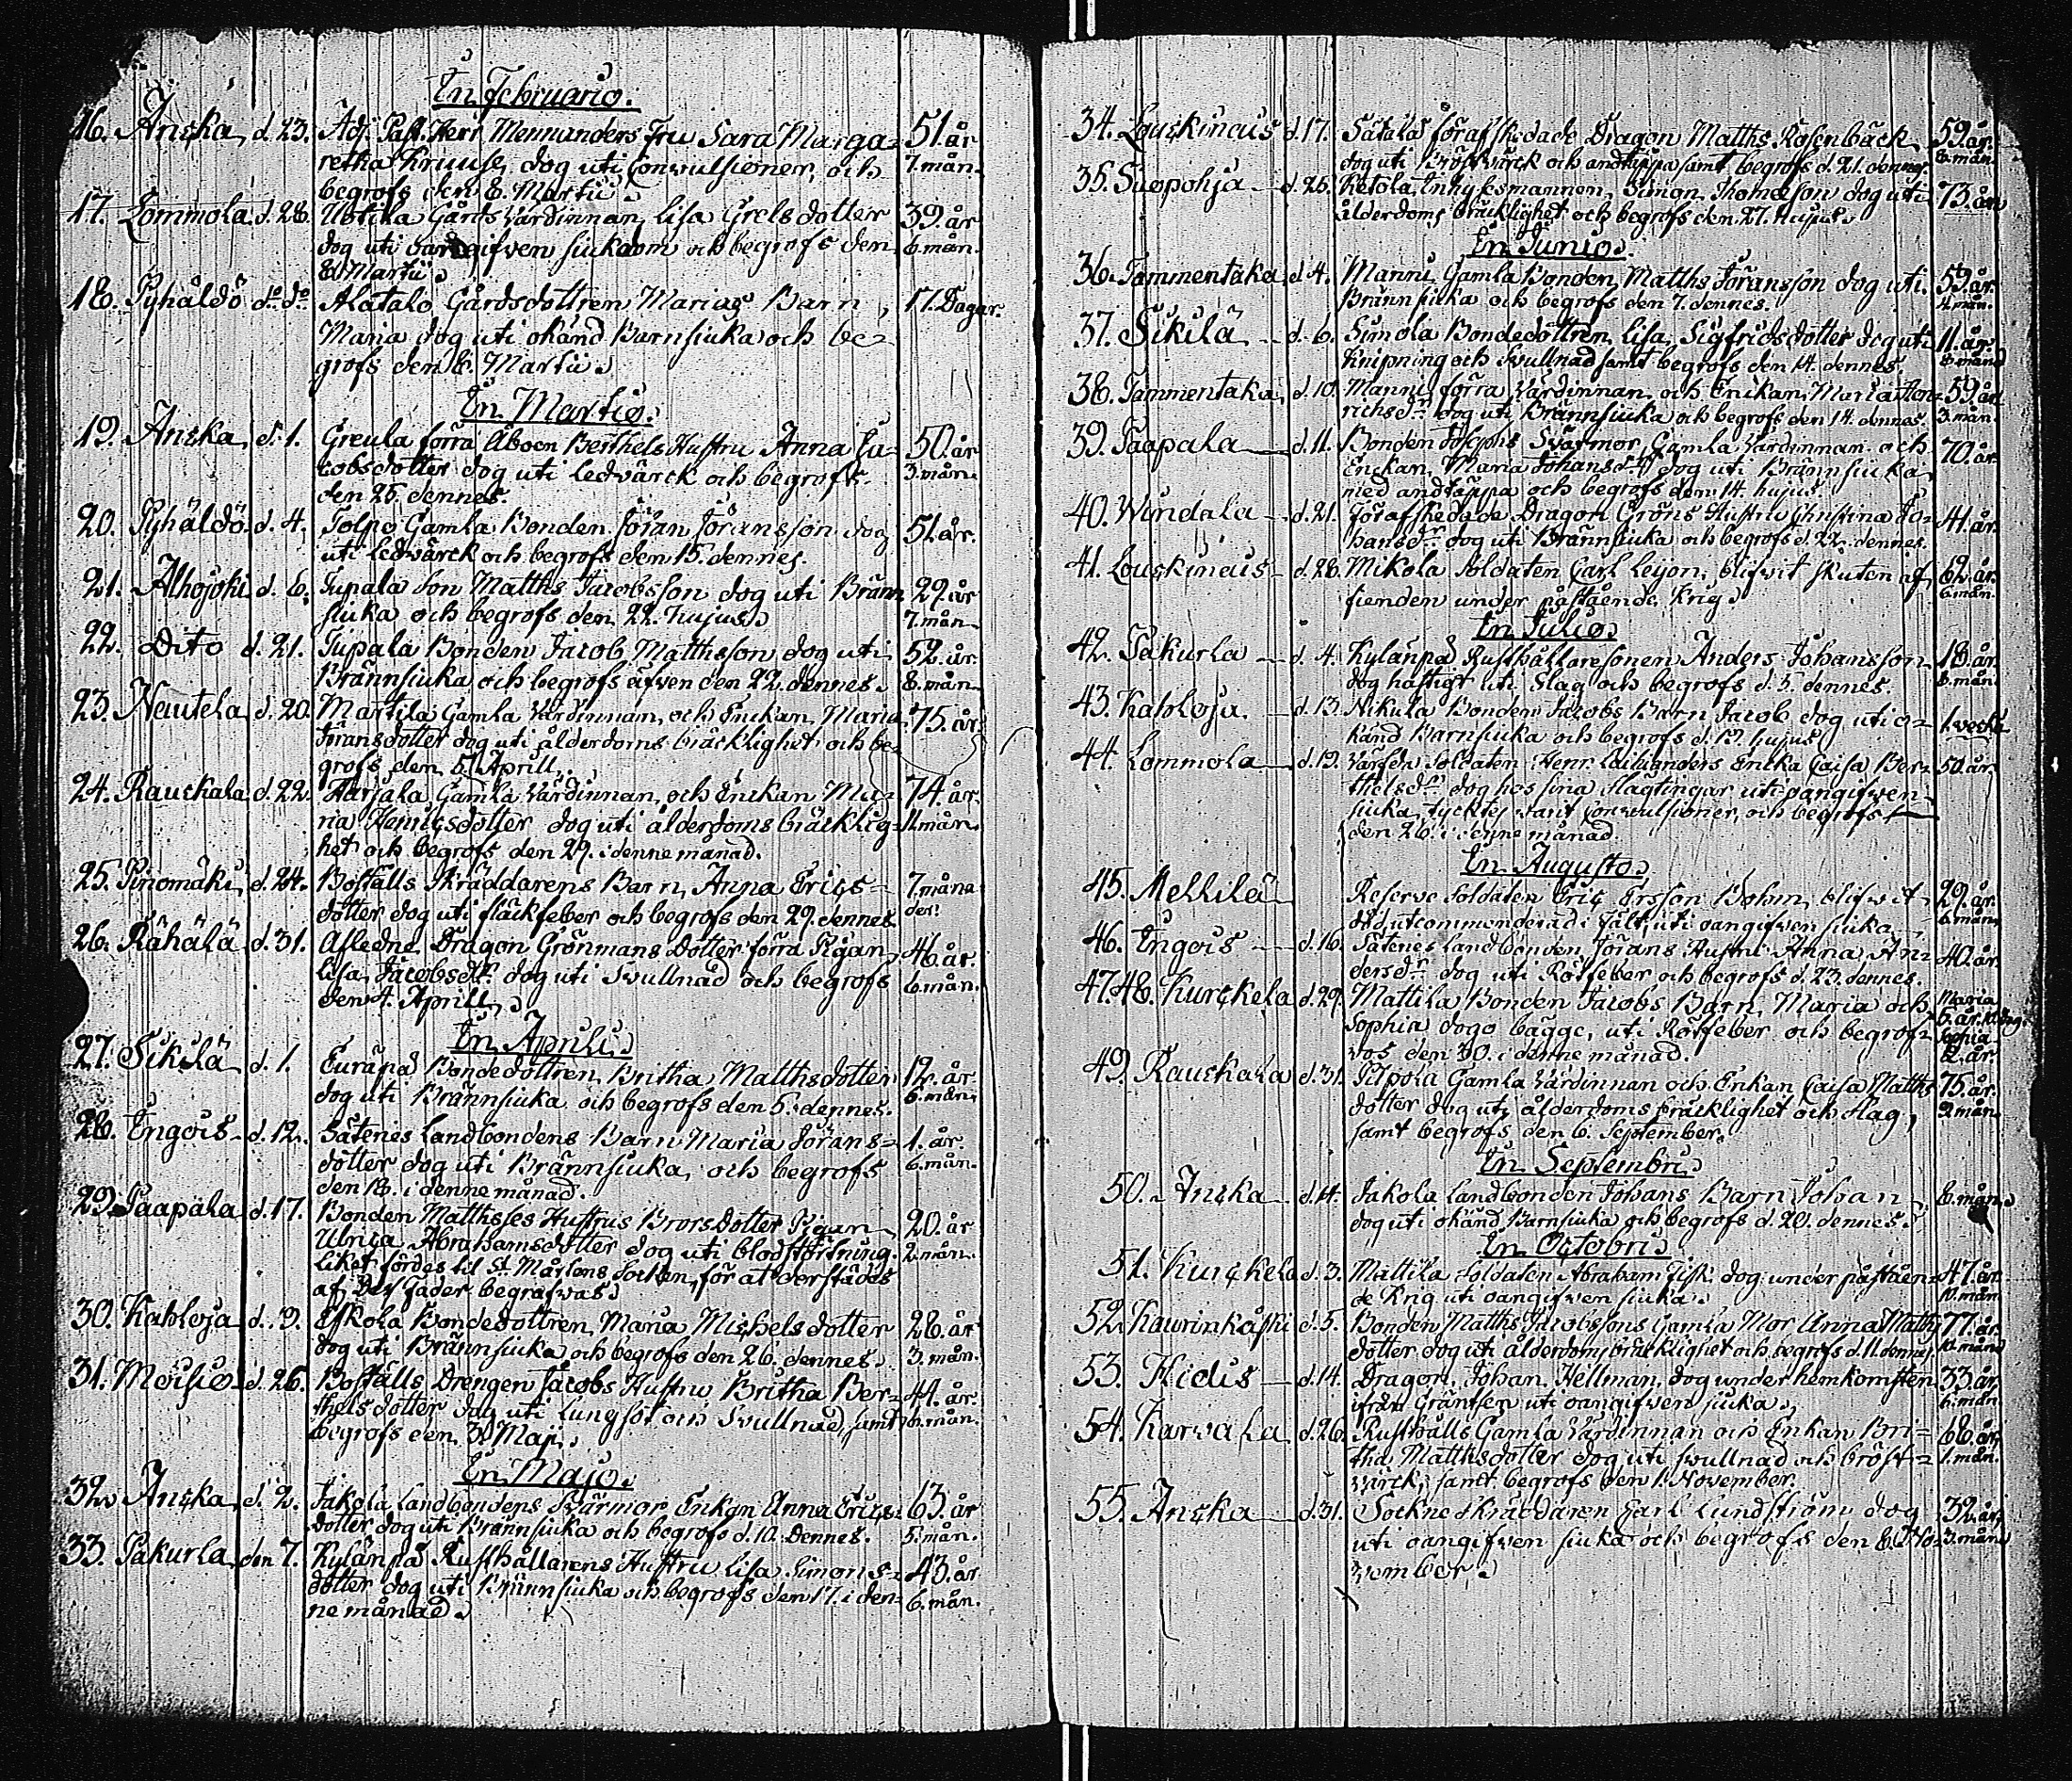 En Februario.
16. Anska d. 23. Adj. Past. Herr Mennanders Fru Sara Marga- 51. år
retha Kruuse, dog uti Convulsioner, och 7. mån.
begrofs den 8. Martii.
17. Lommola d. 28. Uotila Gårds Värdinnan, Lisa Grels dotter 39. år
dog uti oangifven siukdom och begrofs den 6. mån.
8. Martii.
18. Pyhäldö do. do. Alatalo Gårdsdottren Marias Barn, 17. Dagar.
Maria dog uti okänd Barnsiuka och be-
grofs den 8. Martii.
En Martio.
19. Anska d. 1. Greula förra Åboen Berthels Hustru Anna Ja- 50. år
cobsdotter dog uti Ledvärck och begrofs 3. mån.
den 25. dennes.
20. Pyhäldö d. 4. Tolpo Gamla Bonden Jöran Jöransson dog 51. år.
uti Ledvärck och begrofs den 15. dennes.
21. Alhojoki d. 6. Tupala Son Matths Jacobsson dog uti Bränn 29. år
siuka och begrofs den 22. hujus. 7. mån.
22. Dito d. 21. Tupala Bonden Jacob Matthsson dog uti 52. år.
Brännsiuka och begrofs äfven den 22. dennes. 8. mån.
23. Nautela d. 20. Martila Gamla Värdinnan, och Enkan, Maria 75. år.
Jöransdotter dog uti ålderdoms bräcklighet och be-
grofs den 5. Aprill.
24. Rauckala d. 22. Harjala Gamla Värdinnan, och Enkan Ma- 74. år.
ria Henricsdotter dog uti ålderdoms bräcklig- 11. mån.
het och begrofs den 29. i denne månad.
25. Pinomäki d. 24. Boställs Skräddarens Barn, Anna Erics- 7. måna
dotter dog uti fläckfeber och begrofs den 29. dennes. der.
26. Rähälä d. 31. Afledne Dragon Grönmans Dotter förra Pigan, 46. år.
Lisa Jacobsdr. dog uti Svullnad och begrofs 6. mån.
den 4. Aprill.
En Aprili.
27. Sikilä d. 1. Euräpä Bondedottren Britha Matthsdotter 12. år.
dog uti Brännsiuka och begrofs den 5. dennes. 6. mån.
28. Engois d. 12. Sätenes Landbondens Barn Maria Jörans- 1. år.
dotter dog uti Brännsiuka, och begrofs 6. mån.
den 18. i denne månad.
29. Paapala d. 17. Bonden Matthsses Hustrus Brors dotter Pigan 20. år
Ulrica Abrahamsdotter dog uti blodstörtning. 2. mån.
Liket fördes til St. Mårtens Socken, för at derstädes
af Des Fader begrafvas.
30. Kahloja d. 19. Eskola Bondedottren, Maria Michels dotter 28. år
dog uti Brännsiuka och begrofs den 26. dennes. 3. mån.
31. Moisio d. 26. Boställs Drengen Jacobs Hustru Britha Ber- 44. år.
thelsdotter dog uti Lungsot och Svullnad, samt 6. mån.
begrofs den 3. Maji.
En Majo.
32. Anska d. 2. Jakola Landbondens Svärmor Enkan Anna Erics- 63. år
dotter dog uti Brännsiuka och begrofs d. 10. Dennes. 5. mån.
33. Pakurla den 7. Kylänpä Rusthållarens Hustru Lisa Simons- 43. år
dotter dog uti Brännsiuka och begrofs den 17. i den- 6. mån.
ne månad.
34. Louskincus d. 17. Satala förafskedade Dragon Matths Rosenbäck 59. år.
dog uti Bröstvärck och andtäppa samt begrofs d. 21. dennes. 8. mån.
35. Suopohja d. 25. Ketola Inhysesmannen, Simon Thomasson dog uti 73. år
ålderdoms bräcklighet och begrofs den 27. hujus.
En Junio.
36. Tammentaka d. 4. Mannu Gamla Bonden, Matths Jöransson dog uti 59. år.
Brännsiuka och begrofs den 7. dennes. 4. mån.
37. Sikilä d. 6. Simola Bondedottren Lisa Sigfridsdotter dog uti 11. år
Knipning och Svullnad samt begrofs den 14. dennes. 8. månd
38. Tammentaka d. 10. Mannu förra Värdinnan och Enckan, Maria Hen- 59. år
richsdr. dog uti Brännsiuka och begrofs den 14. dennes. 3. mån.
39. Paapala d. 11. Bonden Josephs Svärmor Gamla Värdinnan och 70. år
Enckan, Maria Johansdr. dog uti Brännsiuka
med andtäppa och begrofs den 14. hujus.
40. Windala d. 21. Förafskedade Dragon Gröns Hustru Christina Jo- 41. år.
hansdr. dog uti Brännsiuka och begrofs d. 22. dennes.
41. Louskincus d. 28. Mikola Soldaten Carl Leijon, blifvit skuten af 62. år.
fienden under påstående Krig. 6. mån.
En Julio.
42. Pakurla d. 4. Kylänpä Rusthållaresonen Anders Johansson 18. år.
dog hastigt uti Slag och begrofs d. 5. dennes. 6. mån.
43. Kahloja d. 13. Nikula Bonden Jacobs Barn Jacob dog uti o- 1. vecka
känd Barnsiuka och begrofs d. 19. hujus
44. Lommola d. 19. Soldaten Henr. Enka Caisa Ber- 50. år.
thelsdr. dog hos sina Slägtingar uti oangifven
siuka, tycktes varit Convulsioner, och begrofs
den 26. i denne månad.
En Augusto.
45. Mellilä Reserve Soldaten Eric Ersson Bohm, blifvit 29. år.
död utcommenderad i Fält, uti oangifven siuka. 6. mån.
46. Engois d. 16. Sätenes Landbonden Jörans Hustru Anna An- 40. år.
dersdr. dog uti Rötfeber och begrofs d. 23. dennes.
47. 48. Kurckela d. 29. Mattila Bonden Jacobs Barn, Maria och Maria
Sophia dogo bägge, uti Rötfeber och begrof- 5. år 10. dag. Sophia
vos den 30. i denne månad. 2. år
49. Rauckala d. 31. Pilpola Gamla Värdinnan och Enkan Caisa Matths 75. år.
dotter dog uti ålderdoms bräcklighet och slag, 2. mån.
samt begrofs den 6. September.
En Septembri
50. Anska d. 14. Jakola Landbonden Johans Barn Johan 8. mån.
dog uti okänd Barnsiuka och begrofs d. 20. dennes.
En Octobri
51. Kurckela d. 3. Mattila Soldaten Abraham Fisk dog under påståen- 47. år.
de Krig uti oangifven siuka. 10. mån
52. Kaurinkoski d. 5. Bonden Matths Jacobssons Gamla Mor Anna Maths 77. år.
dotter dog uti ålderdoms bräcklighet och begrofs d. 11. dennes 10. månd
53. Hidis d. 14. Dragon Johan Hellman, dog under hemkomsten 33. år
ifrån Gräntsen uti oangifven siuka. 6. mån.
54. Karvala d. 26. Rusthålls Gamla Värdinnan och Enkan Bri- 68. år
tha Matthsdotter dog uti svullnad och bröst- 1. mån.
värck, samt begrofs den 1. November.
55. Anska d. 31. Sockne Skräddaren Carl Lundström dog 32. år
uti oangifven siuka och begrofs den 8. No- 3. mån
vember.